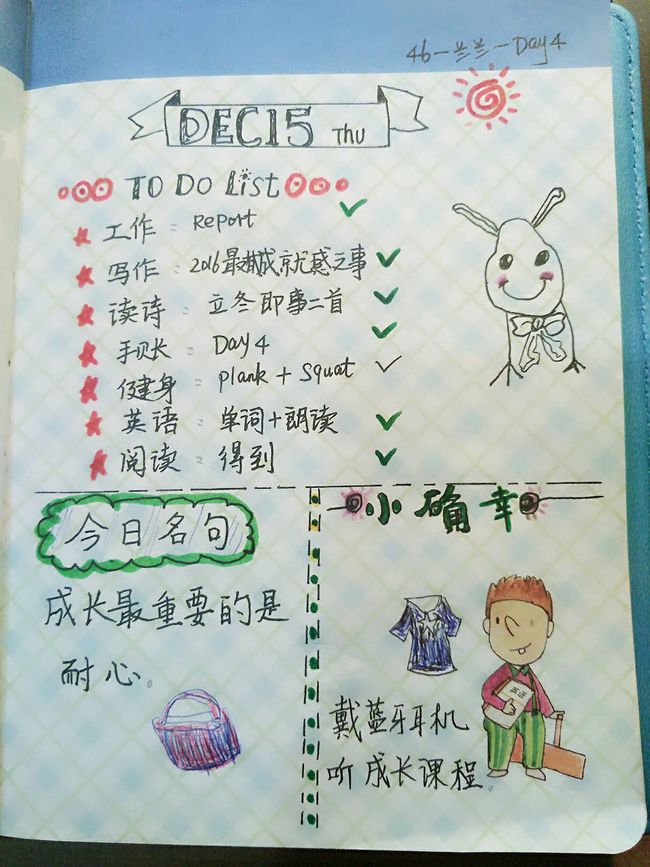 46-兰兰-Day4
DEC15 THU
TO DO LiST
工作: Report
写作: 2016最有成就感之事
读诗: 立冬即事二首
手帐: Day 4
健身: plank + Squat
英语: 单词+朗读
阅读: 得到
今日名句
成长最重要的是
耐心。
小确幸
英语
戴蓝牙耳机
听成长课程。